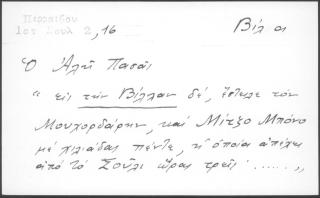 Περραιβου
Ιστ Σουλ 2, 16
Βίλ α
Ὁ Ἀλῆ Πασᾶς
" εἰς τὴν Βίλλαν δέ, ἔστειλε τὸν
Μουχορδάρην, καὶ Μίτζο Μπόνο
μὲ χιλιάδας πέντε, ἡ ὁποία ἀπέχει
ἀπὸ τὸ Σοῦλι ὥρας τρεῖς ...... "